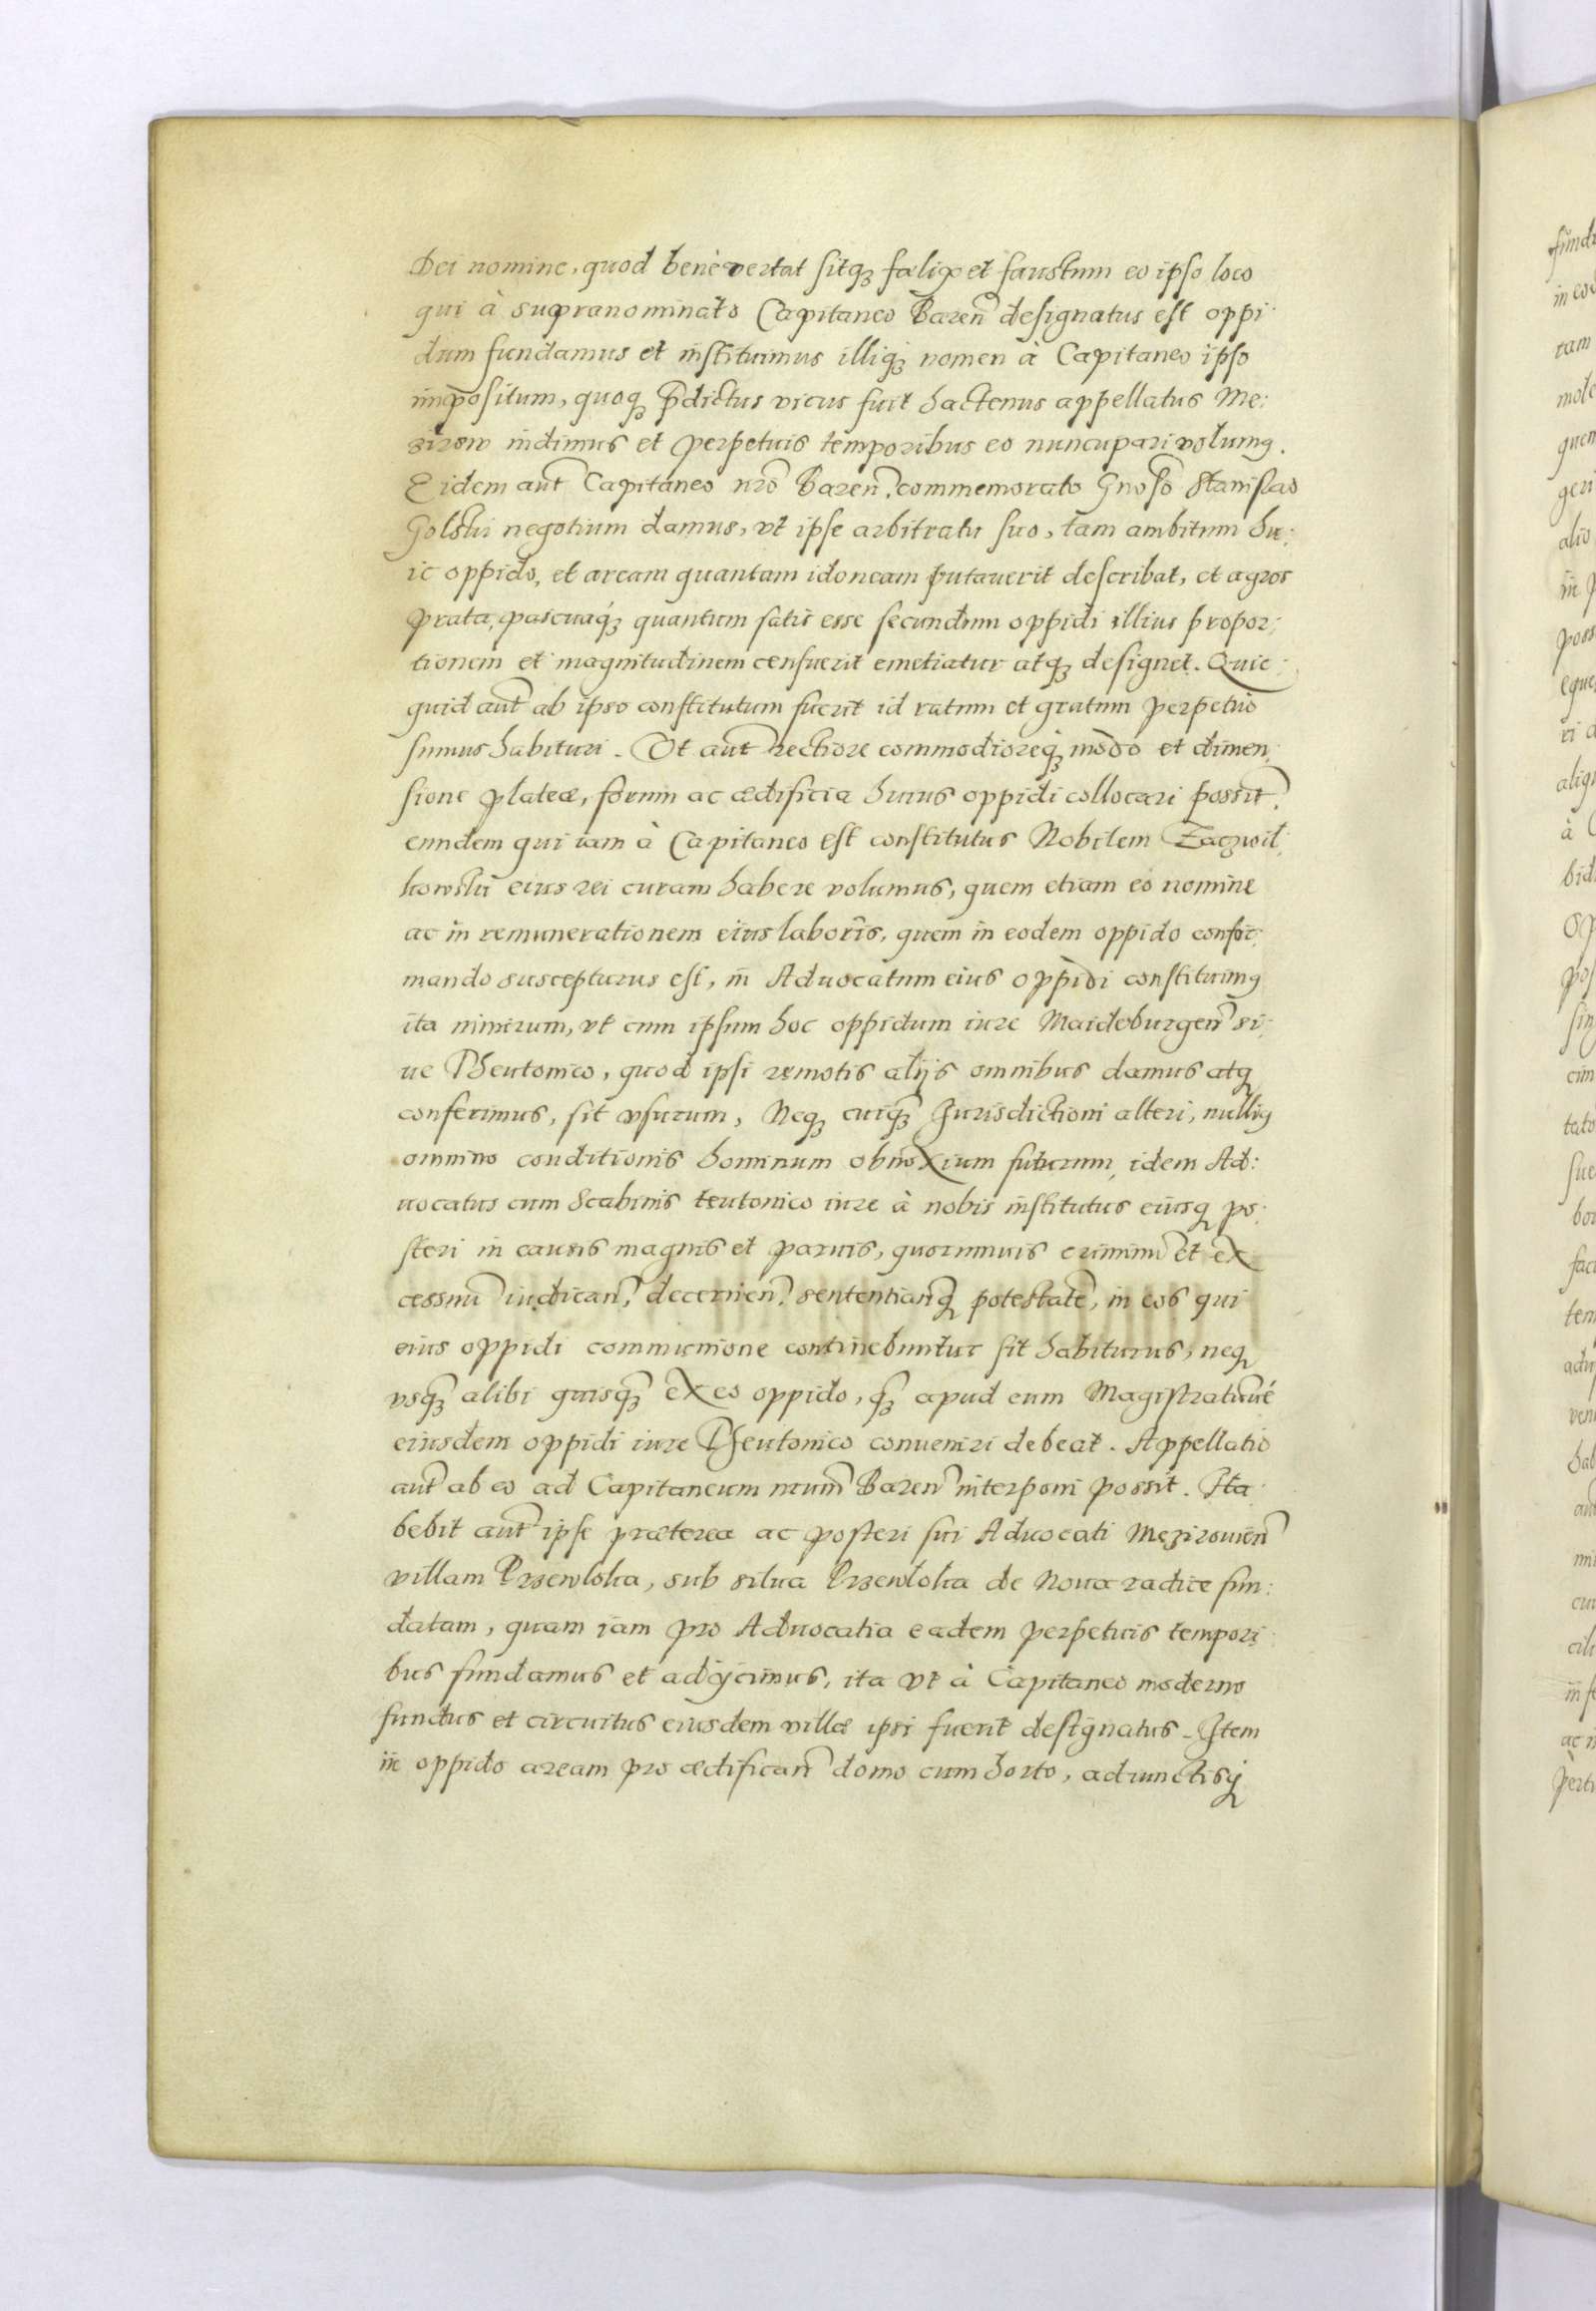 Dei nomine, quod benè vertat sitq́ꝫ fœlix et faustum eo ipso loco
qui à supranominato Capitaneo Baren̄ designatus est oppi:
dum fundamus et instituimus illiq́ꝫ nomen à Capitaneo ipso
impositum, quoqꝫ p̄dictus vicus fuit hactenus appellatus Me:
zirow indimus et perpetuis temporibus eo nuncupari volumꝰ.
Eidem aut̄ Capitaneo nr̄o Baren̄. commemorato Gnōso Stanislao
Golski negotium damus, vt ipse arbitratu suo, tam ambitum hu:
ic oppido, et aream quantam idoneam putauerit describat, et agros
prata, pascuaq́ꝫ quantum satis esse secundum oppidi illius propor:
tionem et magnitudinem censuerit emetiatur atqꝫ designet. Quic:
quid aut̄ ab ipso constitutum fuerit id ratum et gratum perpetuò
sumus habituri. Vt aut̄ rectiore commodioreq́ꝫ modo et dimen:
sione plateæ, forum ac ædificia huius oppidi collocari possit̄.
eundem qui iam à Capitaneo est constitutus Nobilem Zagwoił:
kowski eius rei curam habere volumus, quem etiam eo nomine
ac in remunerationem eius laboris, quem in eodem oppido confir:
mando suscepturus est, in Aduocatum eius oppidi constituimꝰ
ita nimirum, vt cum ipsum hoc oppidum iure Maideburgen̄ si:
ue Theutonico, quod ipsi remotis alijs omnibus damus atqꝫ
conferimus, sit vsurum, Neqꝫ cuiq̄ꝫ Jurisdictioni alteri, nulliꝰ
omnino conditionis hominum obnoxium futurum, idem Ad:
uocatus cum Scabinis teutonico iure à nobis institutus eiusqꝫ po:
steri in causis magnis et paruis, quorumuis criminū et ex
cessuū iudican̄, decernen̄, sententianq̄ potestatē, in eos qui
eius oppidi communione continebuntur sit habiturus, neqꝫ
vsq̄ꝫ alibi quisq̄ꝫ ex eo oppido, q̄ꝫ apud eum Magistratūué
eiusdem oppidi iure Theutonico conueniri debeat. Appellatio
aut̄ ab eo ad Capitaneum nr̄um Baren̄ interponi possit. Ha:
bebit aut̄ ipse præterea ac posteri sui Aduocati Mezirouien̄
villam Przewłoka, sub silua Przewłoka de Noua radice fun:
datam, quam iam pro Aduocatia eadem perpetuis tempori:
bus fundamus et adijcimus, ita vt à Capitaneo moderno
fundus et circuitus eiusdem villæ ipsi fuerit designatus. Item
in oppido aream pro ædifican̄ domo cum horto, adiunctisqꝫ